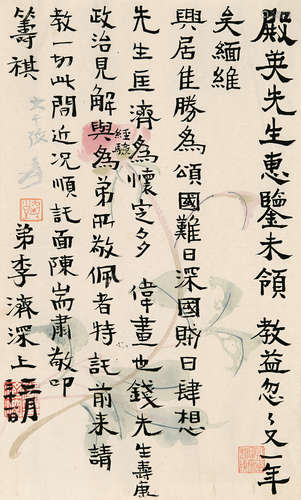 殿英先生惠鑒未領 教益忽々又一年
矣緬維
興居佳勝為頌國難日深國賊日肆想
先生匡濟為懷定多 偉畫也錢先生壽康
政治見解與經驗為弟所敬佩者特託前來請
教一切此間近況順託面陳耑肅敬叩
籌祺
弟李濟深上 三月
大千張爰